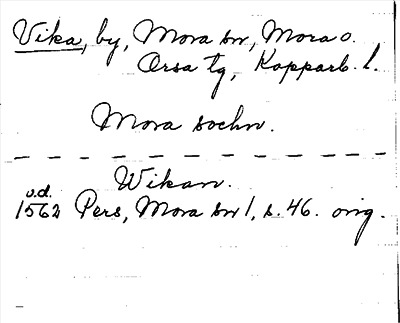 Vika, by, Mora sn, Mora o.
Orsa tg, Kopparb. l.
Mora sochn.
Wikan.
o.d.
1562 Pers, Mora sn 1, s. 46. orig.